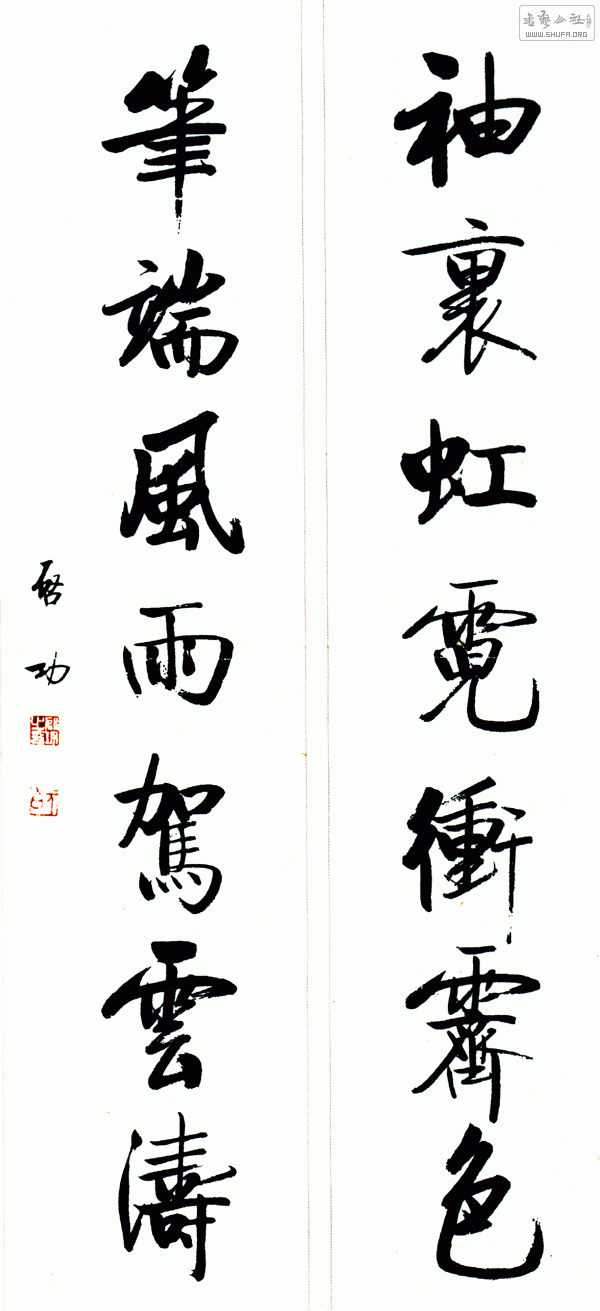 袖裏虹霓衝霽色
筆端風雨駕雲濤
啓功
書藝公社
WWW.SHUFA.ORG